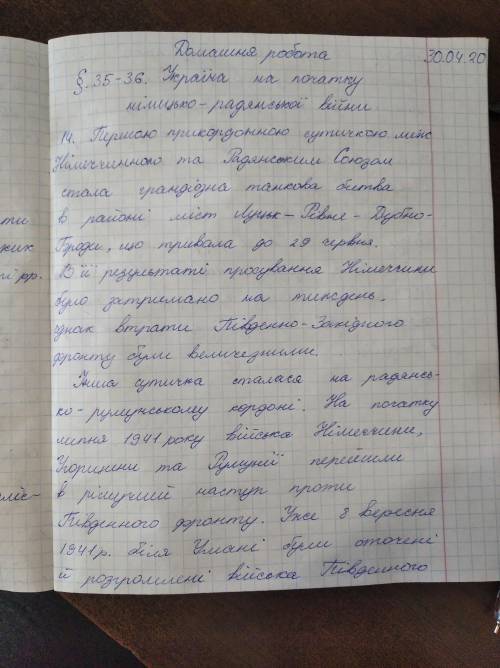 Домашня робота 30.04.20
§.35-36. Україна на початку
німицько-радянської війни
14. Першою прикордонною сутичкою між
Німеччиною та Радянським Союзом
стала грандіозна танкова битва
в районі міст Луцьк-Рівне-Дубно-
Броди, що тривала до 29 червня.
В її результаті просування Німеччини
було затримано на тиждень,
однак втрати Південно-Західного
фронту були величезними.
Інша сутичка сталася на радянсь-
ко-румунському кордоні. На початку
липня 1941 року війська Німеччини,
Угорщини та Румунії перейшли
в рішучий наступ проти
Південного фронту. Уже 8 вересня
1941р. біля Умані були оточені
й розгромлені війська Південного